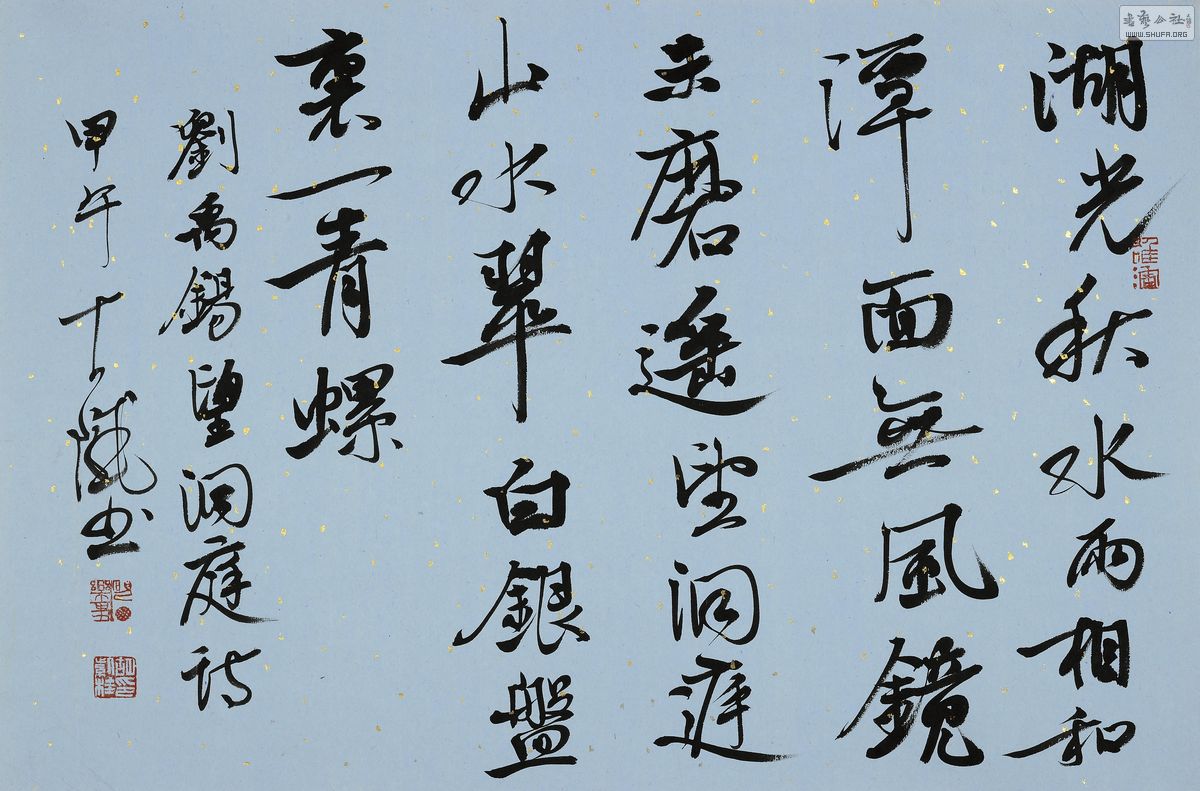 書藝公社
WWW.SHUFA.ORG
湖光秋水兩相和
潭面無風鏡
未磨遙望洞庭
山水翠白銀盤
裏一青螺
劉禹錫望洞庭詩
甲午十書